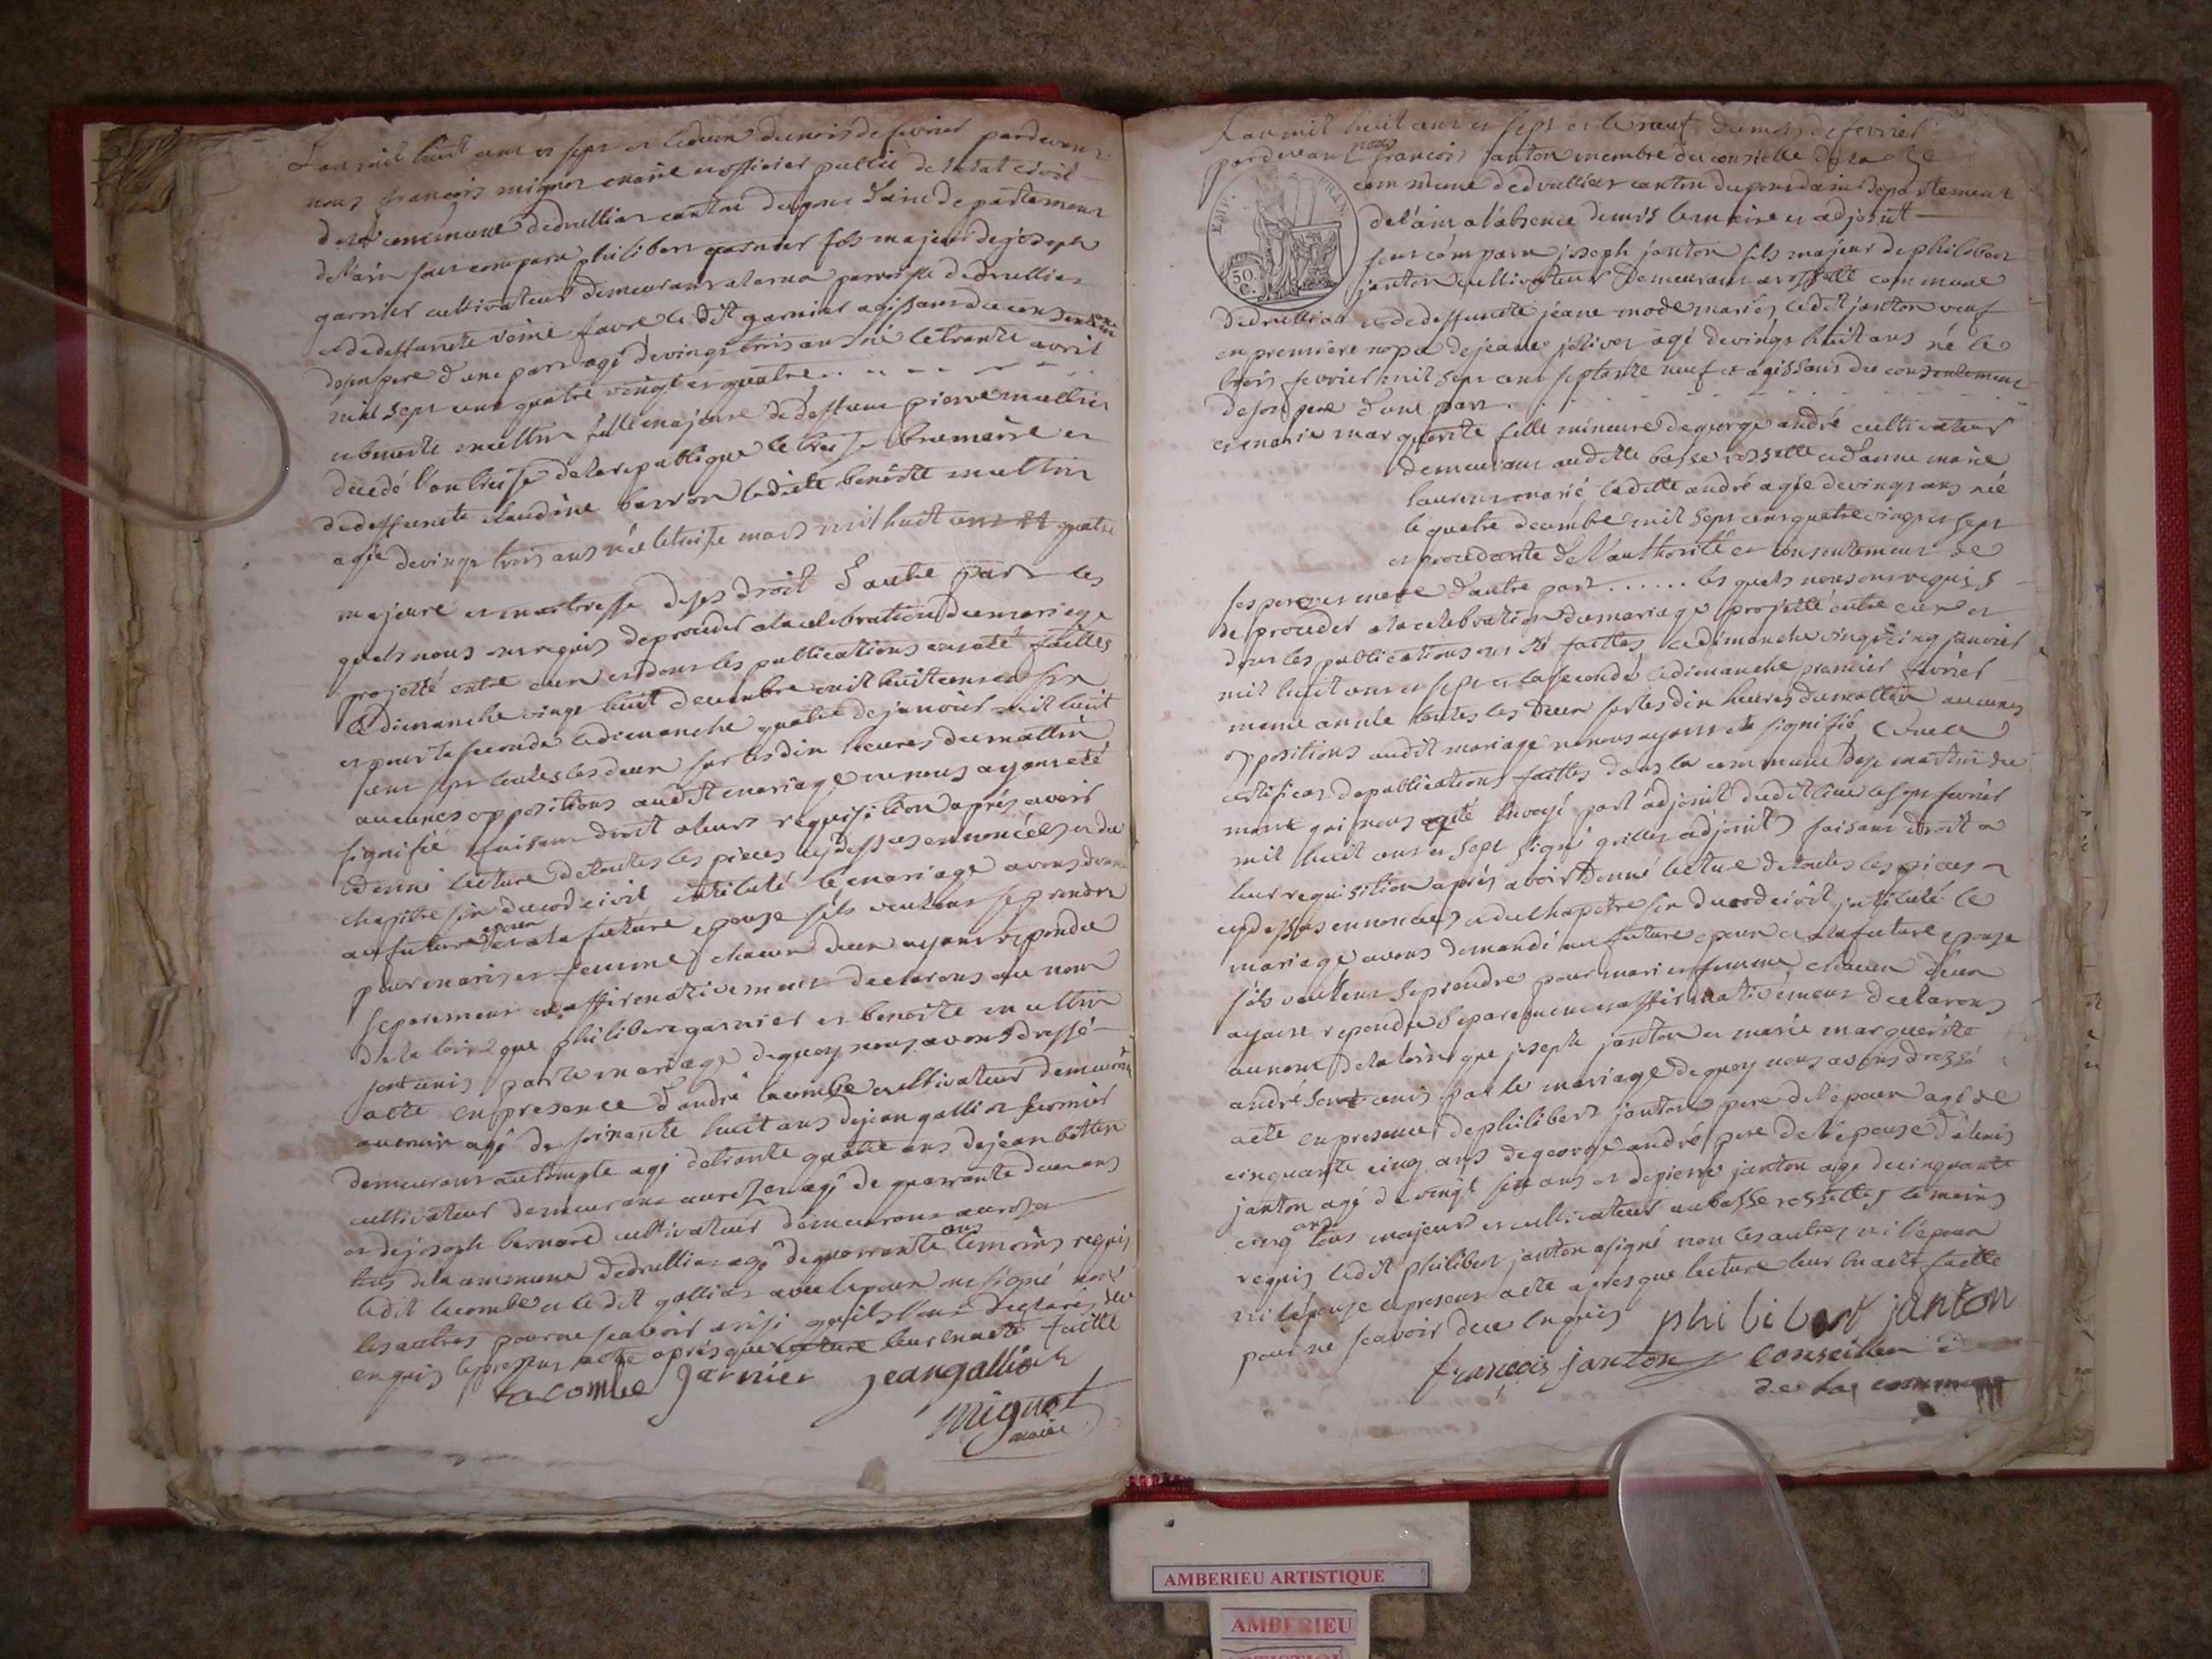 L'an mil huit cens et sept et le deux du mois de fevrier pardevant
nous françois mignot maire et officier public de l'état civil
de la commune de druillias canton du pont d'ain departement
de l'ain sont comparu philibert garnier fils majeur de joseph
garnier cultivateur demeurant a la paroisse de druillias
et de deffunte favre le dit garnier agissant du consentement
de son pere d'une part agé de vingt trois ans né le trente avril
mil sept cens quatre vingt et quatre
et benoite fille majeure de deffunt pierre
décédé l'an treise de la republique le treise brumaire et
de deffunte claudine ladite benoite
agée de vingt trois ans née le treise mars mil huit cens et quatre
majeure et maitresse de ses droit d'autre part les
quels nous ont requis de proceder a la celebration du mariage
projetté entre eux et dont les publications ont eté faittes
le dimanche vingt huit decembre mil huit cens et six
et pour la seconde le dimanche quatre de janvier mil huit
cens sept toutes les deux sur les dix heures du mattin
aucunes oppositions audit mariage ne nous ayant eté
signifié faisant droit a leurs requisition aprés avoir
donné lecture de toutes les pieces cy dessus ennoncées et du
chapitre six du code civil intitulé le mariage avons demandé
au future epoux et a la future epouse s'ils veulent se prendre
pour maris et femme chacun d'eux ayant repondu
separement et affirmativement declarons au nom
de la loix que philibert garnier et benoite
sont unis par le mariage de quoy nous avons dressé
acte en presence d'andré lacombe cultivateur demeurant
agé de soixante huit ans de jean galliot fermier
demeurant au temple agé de trente quatre ans de jean
cultivateur demeurant agé de quarante deux ans
et de joseph bernard cultivateur demeurant
tous de la commune de druillias agé de quarante ans temoins requis
le dit lacombe et le dit galliot avec l'epoux ont signé non
les autres pour ne scavoir ainsi qu'ils l'ont declarés de
enquis le present acte aprés que lecture leur en a eté faitte
lacombe garnier jean galliot
mignot
maire
L'an mil huit cens et sept et le neuf du mois de fevrier
pardevant nous françois janton membre du conseille de la
commune de druillias canton du pont d'ain departement
de l'ain a l'absence de mrs le maire et adjoint
sont comparu joseph janton fils majeur de philibert
janton cultivateur demeurant a rossette commune
EMP. FRAN.
50 C.
de druillias et de deffuncte jeane mode mariés ledit janton veuf
en premiere nopce de jeane jolivet agé de vingt huit ans né le
trois fevrier mil sept cens septante neuf et agissant du consentement
de son pere d'une part
et marie marguerite fille mineure de george andré cultivateur
demeurant audit basse rossette et d'anne marie
laurent marié ladite andré agée de vingt ans née
le quatre decembre mil sept cens quatre vingt et sept
et procedante de l'authorité et consentement de
ses pere et mere d'autre part . . . . . . les quels nous ont requis
de proceder a la celebration du mariage projetté entre eux et
dont les publications ont eté faittes le dimanche vingt cinq janvier
mil huit cens et sept et la seconde le dimanche premier fevrier
meme année toutes les deux sur les dix heures du mattin aucunes
oppositions audit mariage ne nous ayant eté signifié et vue le
certificat de publications faittes dans la commune de st martin du
mont qui nous a eté envoyé par l'adjoint dudit lieu le sept fevrier
mil huit cens et sept signé grillet adjoint faisant droit a
leur requisition aprés avoir donné lecture de toutes les pieces
cy dessus ennoncées et du chapitre six du code civil intitulé le
mariage avons demandé au future epoux et a la future epouse
s'ils veulent se prendre pour mari et femme chacun d'eux
ayant repondu separement et affirmativement declarons
au nom de la loix que joseph janton et marie marguerite
andré sont unis par le mariage de quoy nous avons dressé
acte en presence de philibert janton pere de l'epoux agé de
cinquante cinq ans de george andré pere de l'epouse de denis
janton agé de vingt six ans et de pierre janton agé de cinquante
cinq ans tous majeurs et cultivateur a basse rossettes temoins
requis ledit philibert janton a signé non les autres ni l'epoux
ni l'epouse le present acte aprés que lecture leur en a eté faitte
pour ne scavoir de ce enquis philibert janton
françois janton conseiller
de la commune
AMBERIEU ARTISTIQUE
AMBERIEU